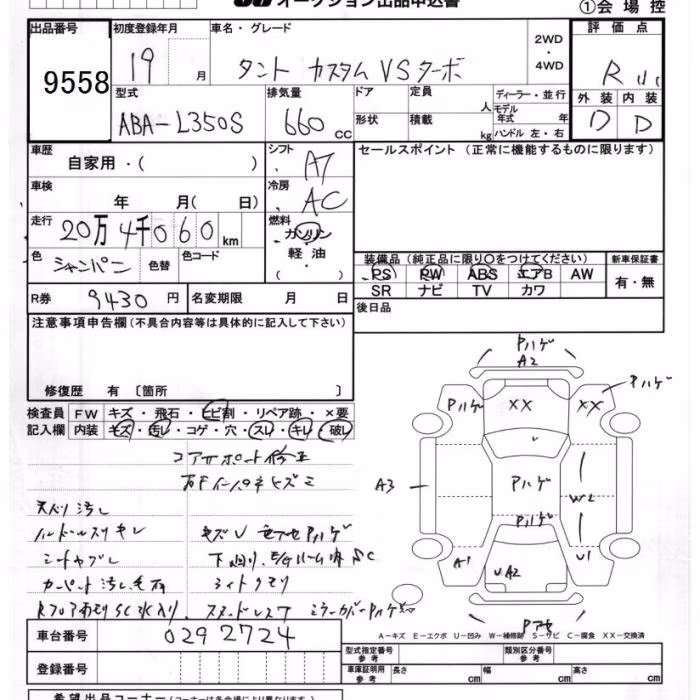 オークション出品申込書
①会場控
出品番号 9558
初度登録年月 19 月
車名・グレード タント カスタム VSターボ
2WD・4WD
評価点 R
外装 D 内装 D
型式 ABA-L350S
排気量 660 cc
ドア 形状
定員 人 積載 kg
ディーラー・並行
モデル年式 年
ハンドル 左・右
車歴 自家用・( )
シフト AT
セールスポイント (正常に機能するものに限ります)
車検 年 月( 日)
冷房 AC
走行 20万4千060 km
燃料 ガソリン 軽油 ( )
色 シャンパン 色替 色コード
装備品 (純正品に限り○をつけてください)
PS PW ABS エアB AW
SR ナビ TV カワ
新車保証書 有・無
R券 9430 円 名変期限 月 日
後日品
注意事項申告欄 (不具合内容等は具体的に記入して下さい)
修復歴 有 〔箇所 〕
検査員記入欄
FW キズ・飛石・ヒビ割・リペア跡・×要
内装 キズ・汚レ・コゲ・穴・スレ・キレ・破レ
コアサポート修正
天バリ汚レ
ハンドルスリキレ
シートヤブレ
ライトクモリ
スタッドレス7
Pハゲ
A2
Pハゲ
Pハゲ
XX
XX
U
A3
Pハゲ
W2
Pハゲ
A1
UA2
U1
A-キズ E-エクボ U-凹み W-補修跡 S-サビ C-腐食 XX-交換済
車台番号 0292724
登録番号
型式指定番号 参考
類別区分番号 参考
車庫証明用 参考 長さ cm 幅 cm 高さ cm
希望出品コーナー